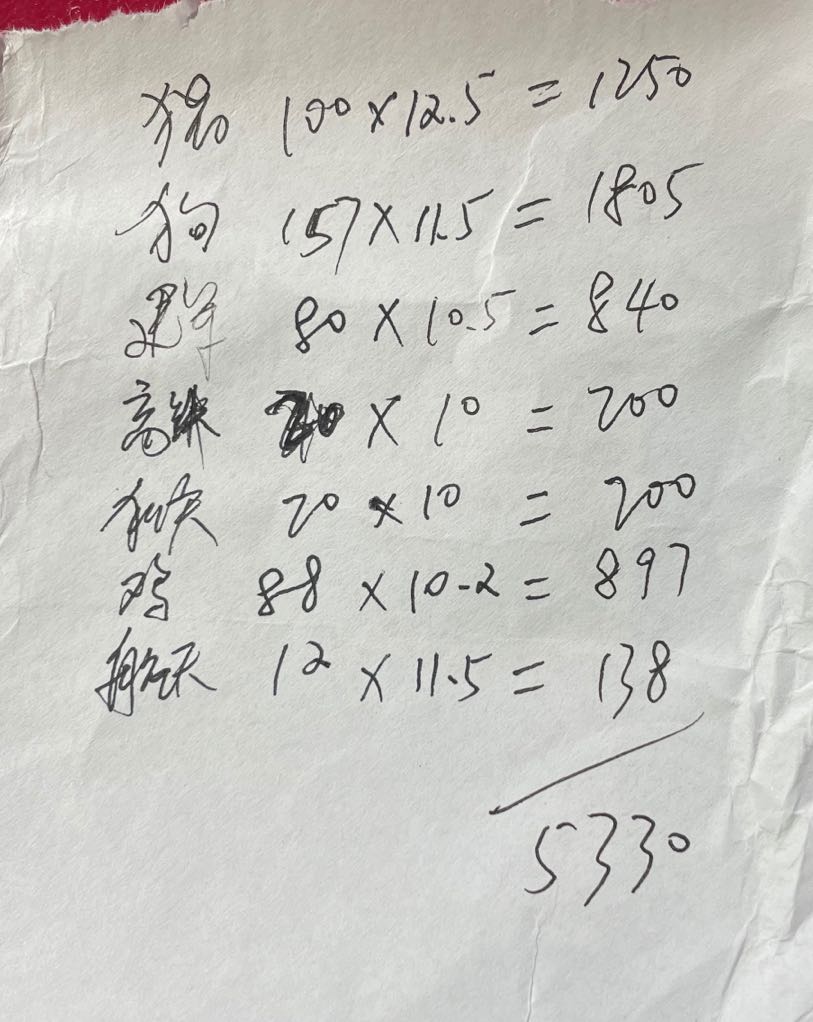 猪 100×12.5=1250
狗 157×11.5=1805
建军 80×10.5=840
高铁 20×10=200
和天 20×10=200
鸡 88×10.2=897
航天 12×11.5=138
5330